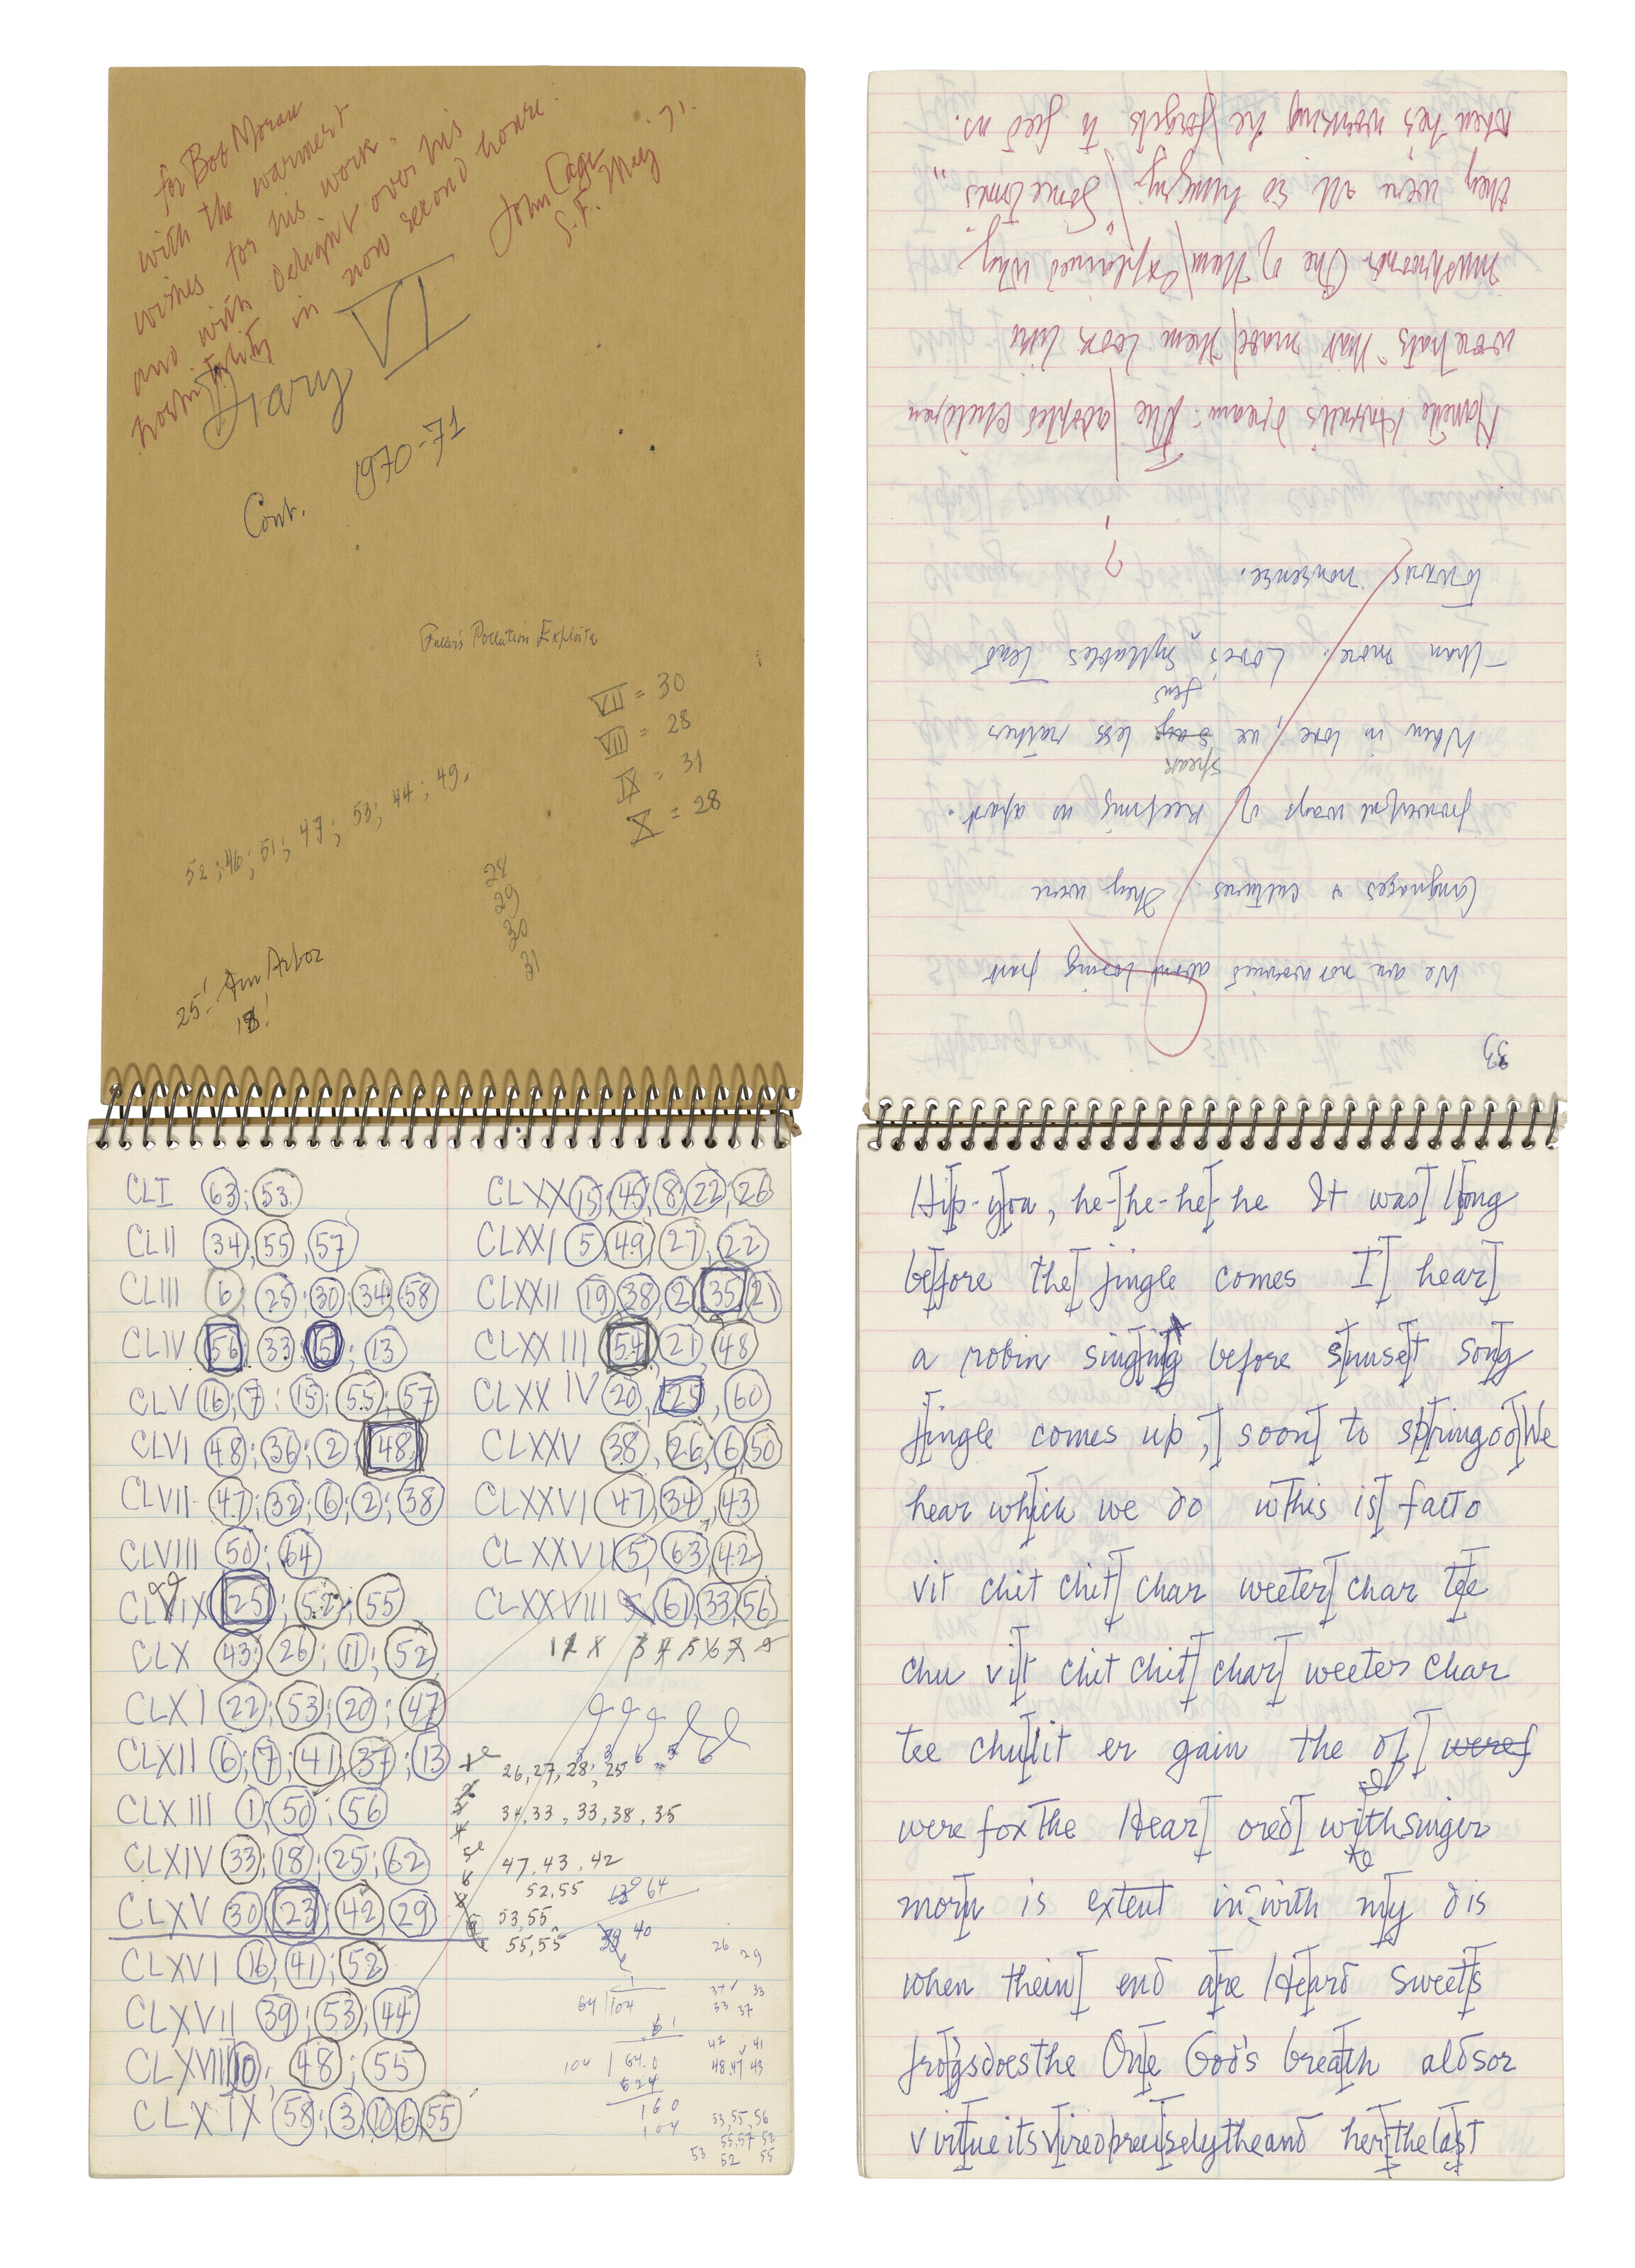 for Bob Moran
with the warmest
wishes for his work,
and with delight over his
hospitality in now second house.
John Cage
S.F. May '71.
Diary VI
Cont. 1970-71
Fuller's Pollution Exploits
VII = 30
VIII = 28
IX = 31
X = 28
52; 46; 51; 47; 53; 44; 49.
28
29
30
31
25! Ann Arbor
18!
CLI 63; 53
CLII 34, 55, 57
CLIII 6, 25; 30; 34, 58
CLIV 56, 33, 15, 13
CLV 16; 7; 15; 55; 57
CLVI 48; 36; 2, 48
CLVII 47; 32; 6; 2; 38
CLVIII 50; 64
CLIX 25; 52; 55
CLX 43; 26; 11; 52
CLXI 22; 53; 20; 47
CLXII 6; 7; 41; 37; 13
CLXIII 1, 50; 56
CLXIV 33; 18; 25; 62
CLXV 30, 23, 42, 29
CLXVI 16, 41; 52
CLXVII 39; 53, 44
CLXVIII 10, 48; 55
CLXIX 58; 3, 10, 6, 55
CLXX 15, 45, 8, 22, 26
CLXXI 5, 49, 27, 22
CLXXII 19, 38, 2, 35, 21
CLXXIII 54, 21, 48
CLXXIV 20, 25, 60
CLXXV 38, 26, 6, 50
CLXXVI 47, 34, 43
CLXXVII 5, 63, 42
CLXXVIII 61, 33, 56
26, 27, 28, 25
34, 33, 33, 38, 35
47, 43, 42
52, 55
64
53, 55
40
55, 55
26 29
33
64 104
53 37
.61
42 41
104 64.0
48.47 43
624
160
104
53, 55, 56
55, 57 52
53 52 55
33
We are not worried about losing past
languages & cultures. They were
powerful ways of keeping us apart.
speak
When in love, we say less rather
few
than more. Love's syllables tend
towards nonsense.
?
Mamelle Antrell's dream: The adopted children
wore hats that made them look like
mushrooms. One of them explained why
they were all so hungry: "Sometimes
when he's working he forgets to feed us."
Hip-you, he-he-he-he It was long
before the jingle comes I hear
a robin singing before sunset song
jingle comes up, soon to springooWe
hear which we do wthis is facto
vit chit chit char weeter char tee
chu vit chit chit char weeter char
tee chulit er gain the of weref
were foxthe Hear ored withsinger
morn is extent in with my dis
when thein end are Heard sweets
frogsdoesthe One God's breath aldsor
virtueitsvireopreciselytheand herthelast